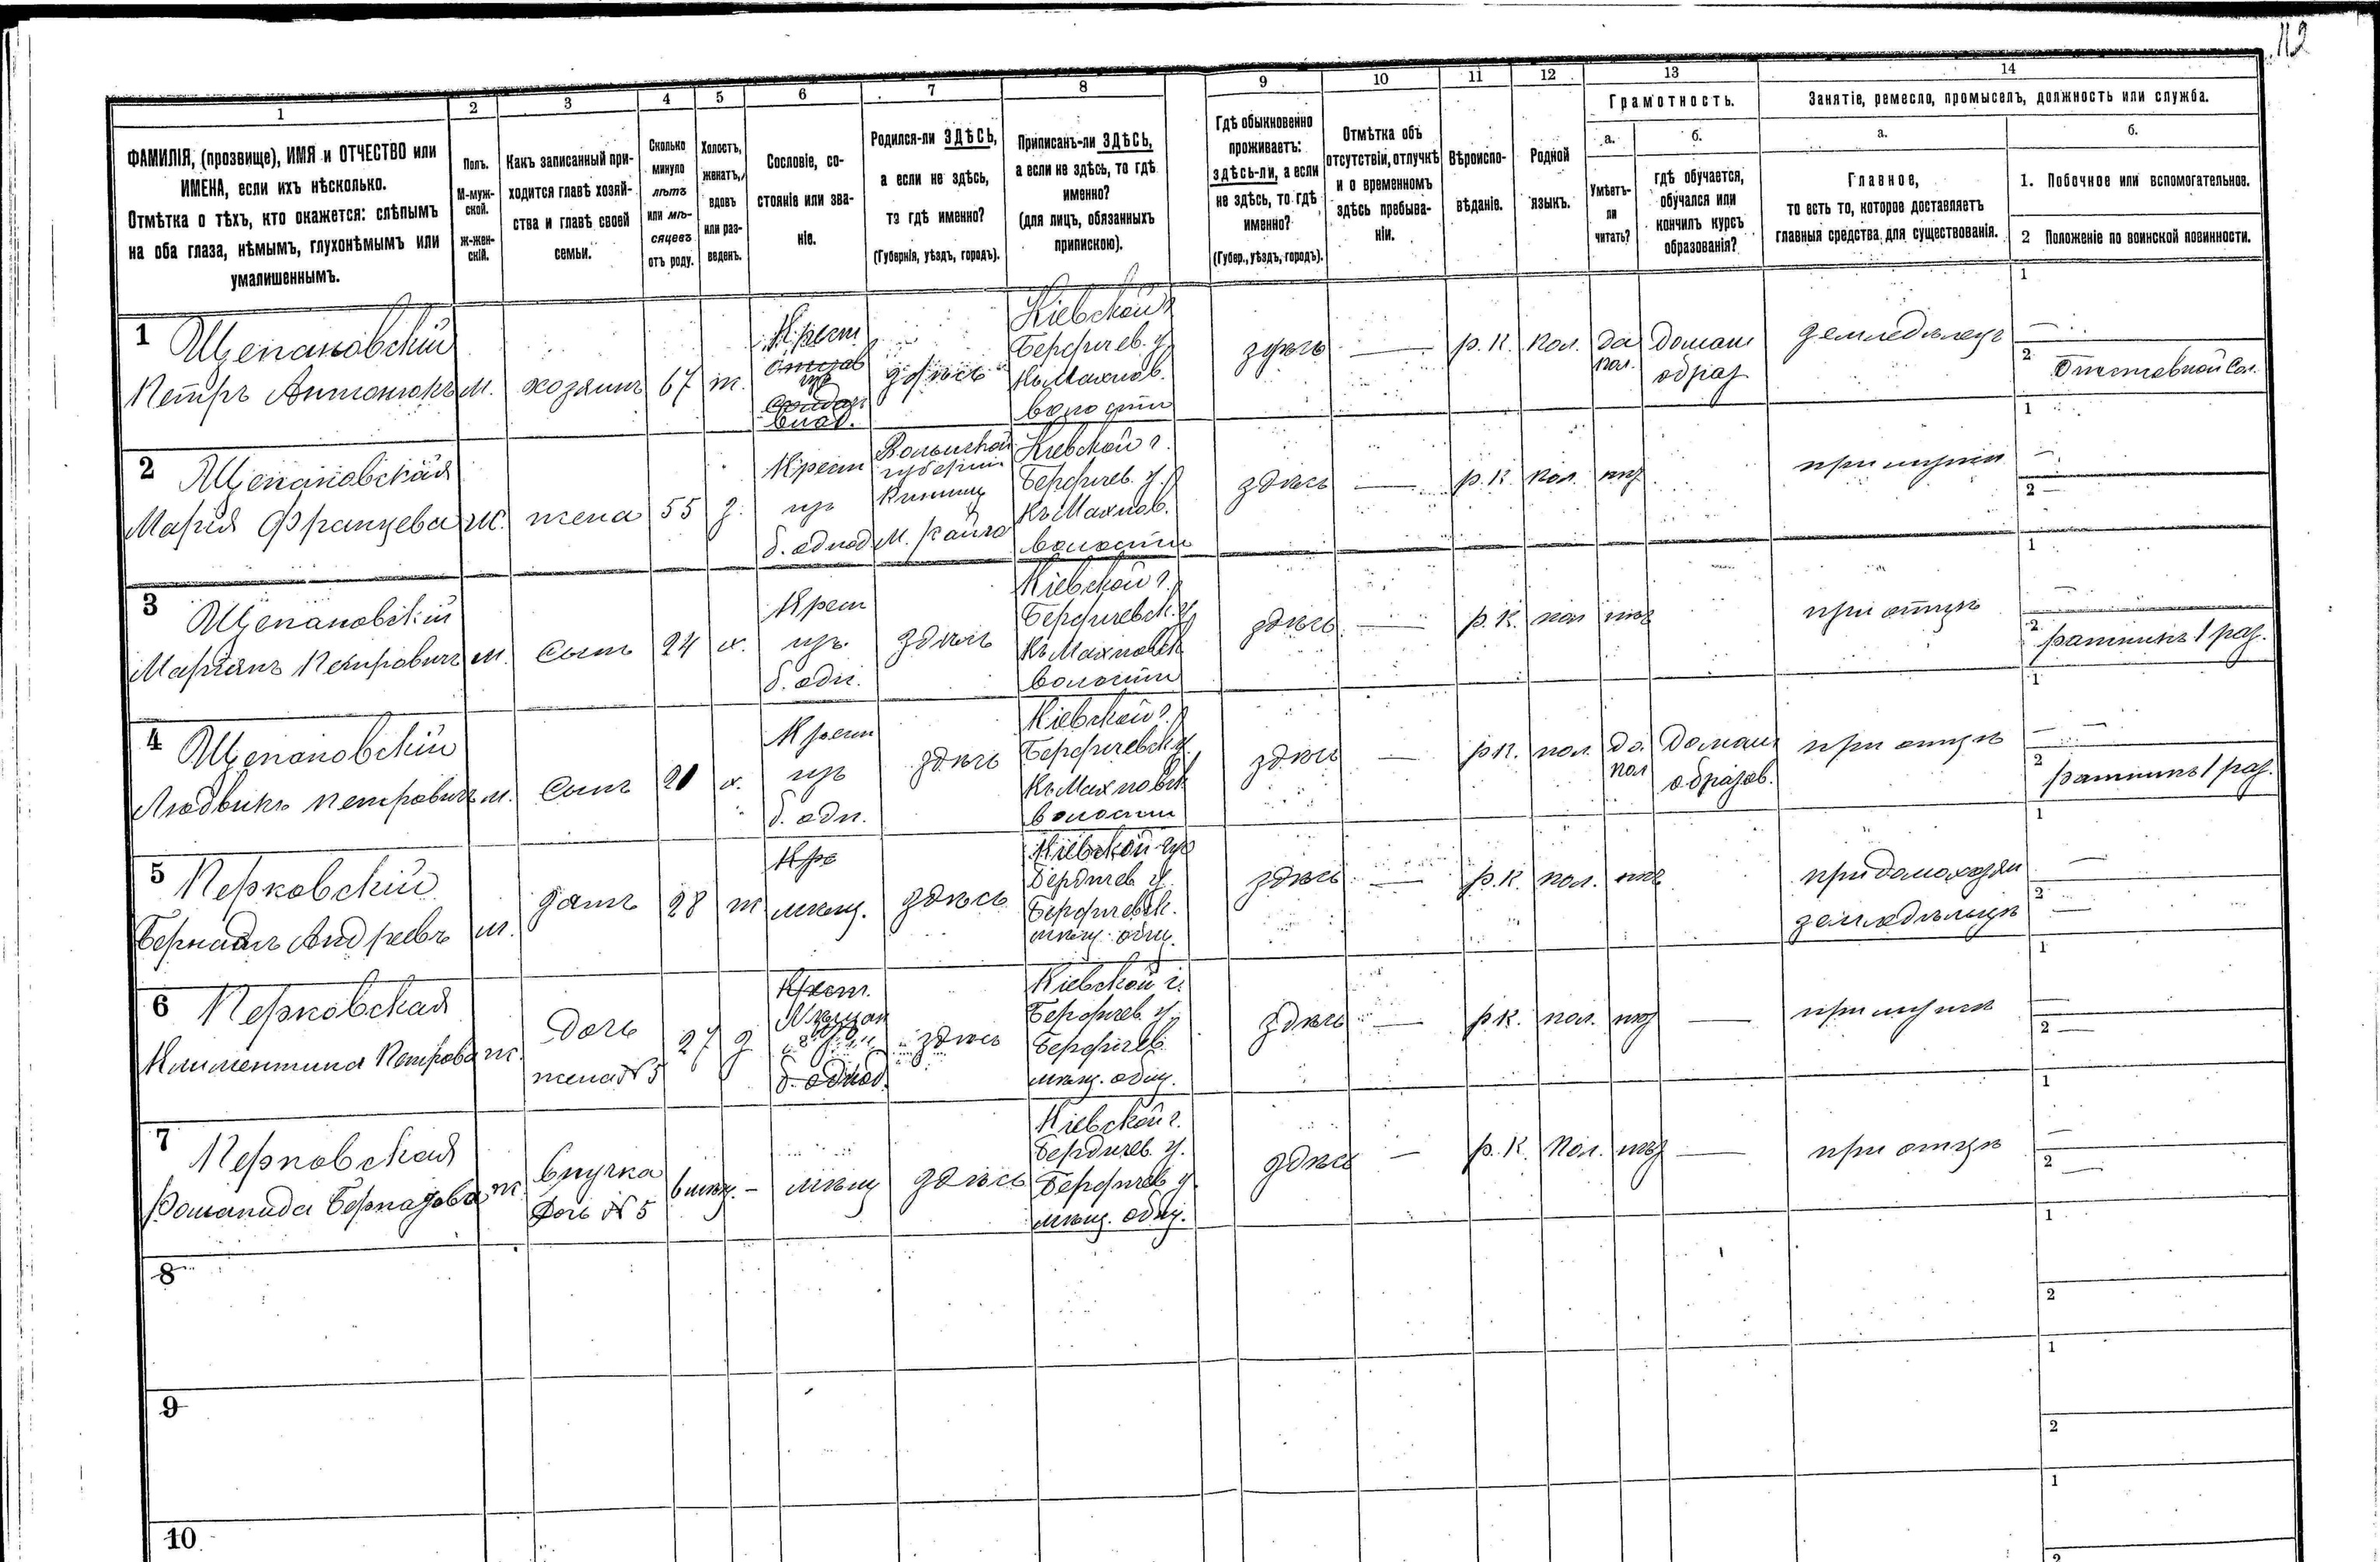 112
1 2 3 4 5 6 7 8 9 10 11 12 13 14
ФАМИЛІЯ, (прозвище), ИМЯ и ОТЧЕСТВО или
ИМЕНА, если ихъ нѣсколько.
Отмѣтка о тѣхъ, кто окажется: слѣпымъ
на оба глаза, нѣмымъ, глухонѣмымъ или
умалишеннымъ.
Полъ.
М-муж-
ской.
Ж-жен-
скій.
Какъ записанный при-
ходится главѣ хозяй-
ства и главѣ своей
семьи.
Сколько
минуло
лѣтъ
или мѣ-
сяцевъ
отъ роду.
Холостъ,
женатъ,
вдовъ
или раз-
веденъ.
Сословіе, со-
стояніе или зва-
ніе.
Родился-ли ЗДѢСЬ,
а если не здѣсь,
то гдѣ именно?
(Губернія, уѣздъ, городъ).
Приписанъ-ли ЗДѢСЬ,
а если не здѣсь, то гдѣ
именно?
(для лицъ, обязанныхъ
припискою).
Гдѣ обыкновенно
проживаетъ:
здѣсь-ли, а если
не здѣсь, то гдѣ
именно?
(Губер., уѣздъ, городъ).
Отмѣтка объ
отсутствіи, отлучкѣ
и о временномъ
здѣсь пребыва-
ніи.
Вѣроиспо-
вѣданіе.
Родной
языкъ.
Грамотность.
а.
Умѣетъ-
ли
читать?
б.
гдѣ обучается,
обучался или
кончилъ курсъ
образованія?
Занятіе, ремесло, промыселъ, должность или служба.
а.
Главное,
то есть то, которое доставляетъ
главныя средства для существованія.
б.
1. Побочное или вспомогательное.
2 Положеніе по воинской повинности.
1 Щепановскій
Петръ Антонюкъ
м.
хозяинъ
67
ж.
Крест
здѣсь
Кіевской г
Бердичев. у.
къ Махнов.
волости
здѣсь
—
р. К.
пол.
да
пол.
домаш
образ
земледѣлецъ
1 —
2 Отставной Сол.
2 Щепановская
Марія Францева
ж.
жена
55
з.
Крест
изъ
б. однод.
Волынской
губерніи
Кіевской г.
Бердичев. у.
къ Махнов.
волости
здѣсь
—
р. К.
пол.
нѣтъ
при мужѣ
1 —
2 —
3 Щепановскій
Маріянъ Петровичъ
м.
Сынъ
24
х.
Крест
изъ
б. одн.
здѣсь
Кіевской г.
Бердичевск. у.
къ Махновск
волости
здѣсь
—
р. К.
пол
нѣтъ
при отцѣ
1 —
2 ратникъ 1 раз.
4 Щепановскій
Людвикъ Петровичъ
м.
Сынъ
20
х.
Крест
изъ
б. одн.
здѣсь
Кіевской г.
Бердичевск у.
къ Махновск
волости
здѣсь
—
р. К.
пол.
да.
пол
домаш
образов.
при отцѣ
1 —
2 ратникъ 1 раз.
5 Перковскій
Бернадъ Андреевъ
м.
зать
28
ж
Кре
мѣщ.
здѣсь
Кіевской губ
Бердичев у.
Бердичевск.
мѣщ. общ.
здѣсь
—
р. К.
пол.
нѣтъ
при домохозяи
земледѣлецъ
1 —
2 —
6 Перковская
Климентина Петрова
ж.
дочь
жена №5
27
з
Крест.
Мѣщан
б. однод.
здѣсь
Кіевской г.
Бердичев у.
Бердичев
мѣщ. общ.
здѣсь
—
р К.
пол.
нѣтъ
—
при мужѣ
1 —
2 —
7 Перковская
Ромалида Бернадова
ж.
внучка
Дочь № 5
6 мѣц.
—
мѣщ
здѣсь
Кіевской г.
Бердичев. у.
Бердичев у
мѣщ. общ.
здѣсь
—
р. К.
пол.
нѣтъ
—
при отцѣ
1 —
2 —
8
1
2
9
1
2
10
1
2